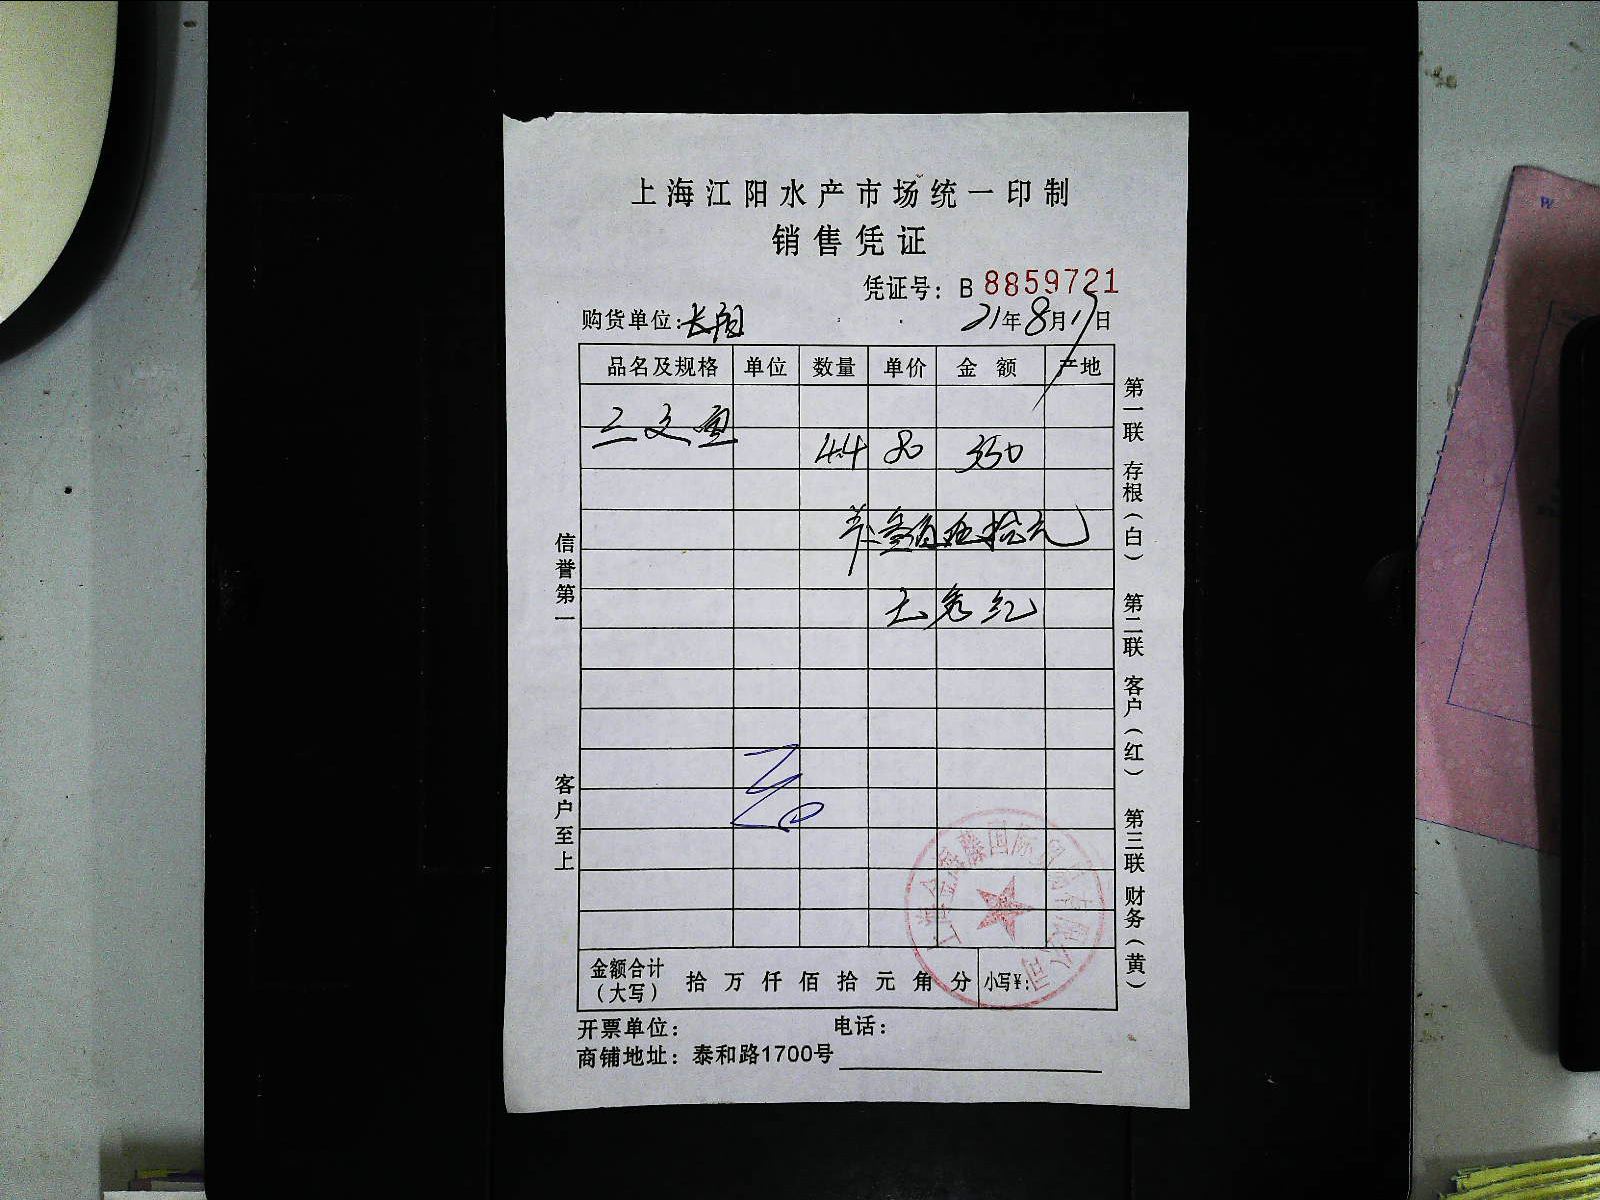 上海江阳水产市场统一印制
销售凭证
凭证号：B 8859721
购货单位：长阳 21年8月17日
品名及规格 单位 数量 单价 金额 产地
三文鱼 4.4 80 350
叁佰伍拾元
信誉第一
客户至上
第一联 存根（白） 第二联 客户（红） 第三联 财务（黄）
金额合计（大写） 拾 万 仟 佰 拾 元 角 分 小写¥：
开票单位： 电话：
商铺地址：泰和路1700号